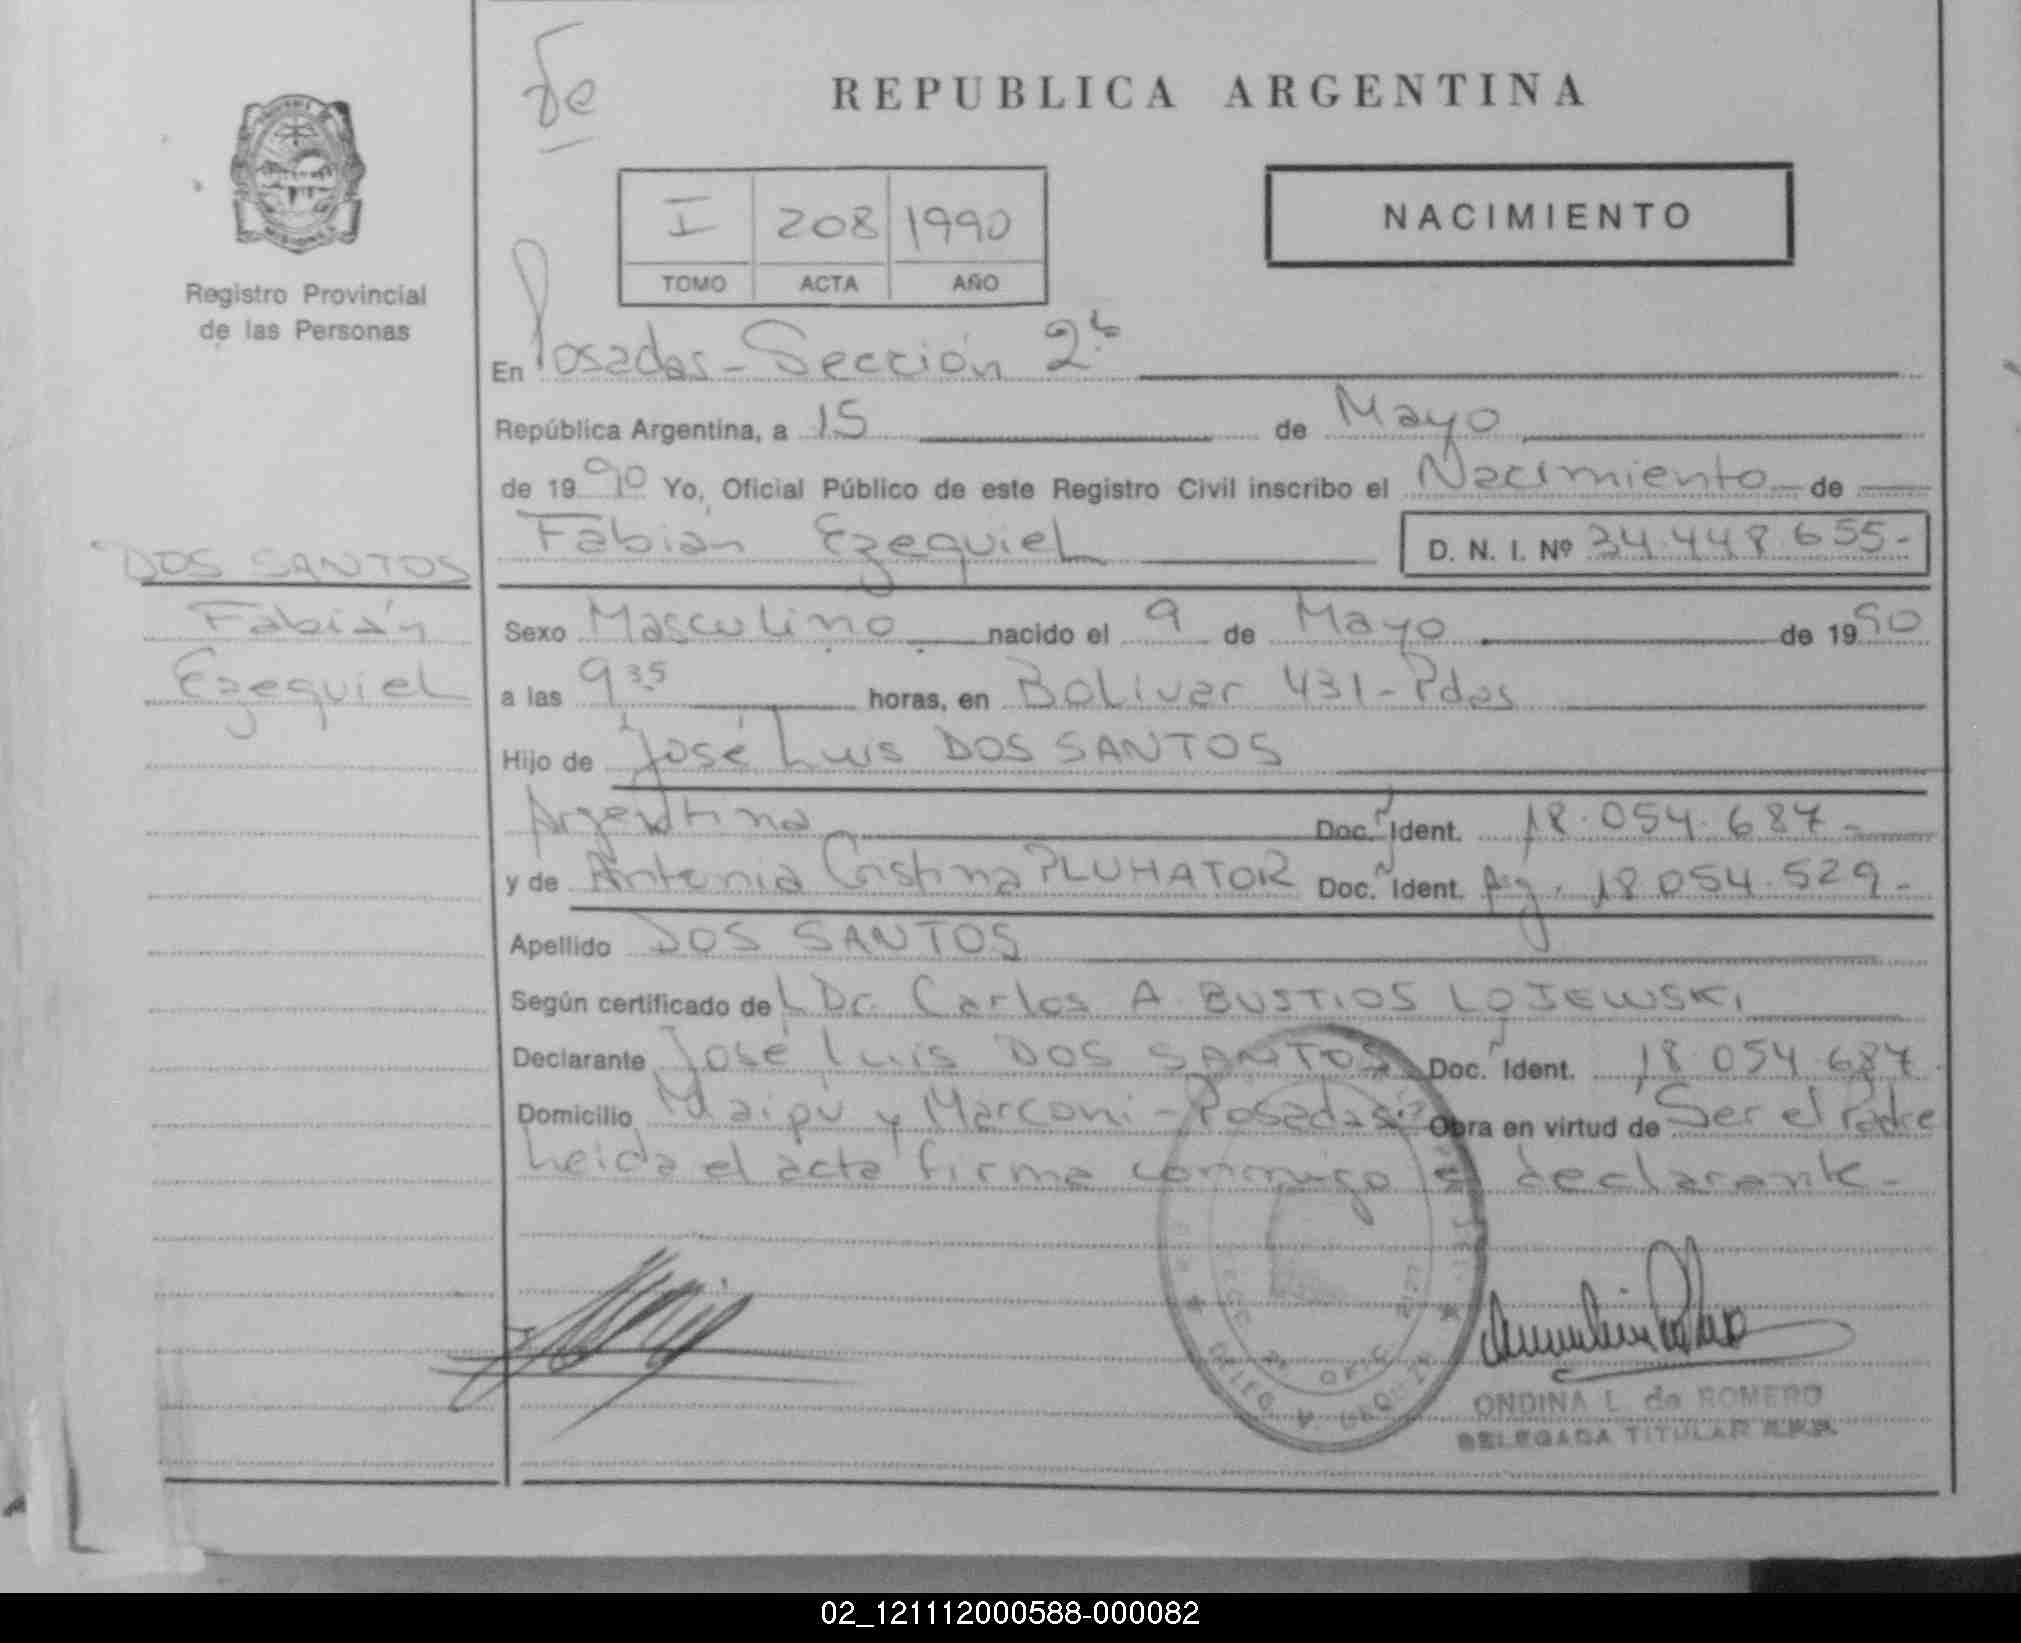 de
REPUBLICA ARGENTINA
I 208 1990
TOMO ACTA AÑO
NACIMIENTO
Registro Provincial
de las Personas
En Posadas - Sección 2ª
República Argentina, a 15 de Mayo
de 1990 Yo, Oficial Público de este Registro Civil inscribo el Nacimiento de
Fabián Ezequiel D. N. I. Nº 34.448.655.-
DOS SANTOS
Fabián
Ezequiel
Sexo Masculino nacido el 9 de Mayo de 1990
a las 9 35 horas, en Bolivar 431 - Pdas
Hijo de José Luis DOS SANTOS
Argentina Doc. Ident. 18.054.687.-
y de Antonia Cristina PLUHATOR Doc. Ident. Arg. 18.054.529.-
Apellido DOS SANTOS
Según certificado del Dr. Carlos A BUSTIOS LOJEWSKI
Declarante José Luis DOS SANTOS Doc. Ident. 18.054.687
Domicilio Maipú y Marconi - Posadas Obra en virtud de Ser el Padre
Leida el acta firma conmigo el declarante.-
ONDINA L. de ROMERO
DELEGADA TITULAR R.P.P.
02_121112000588-000082